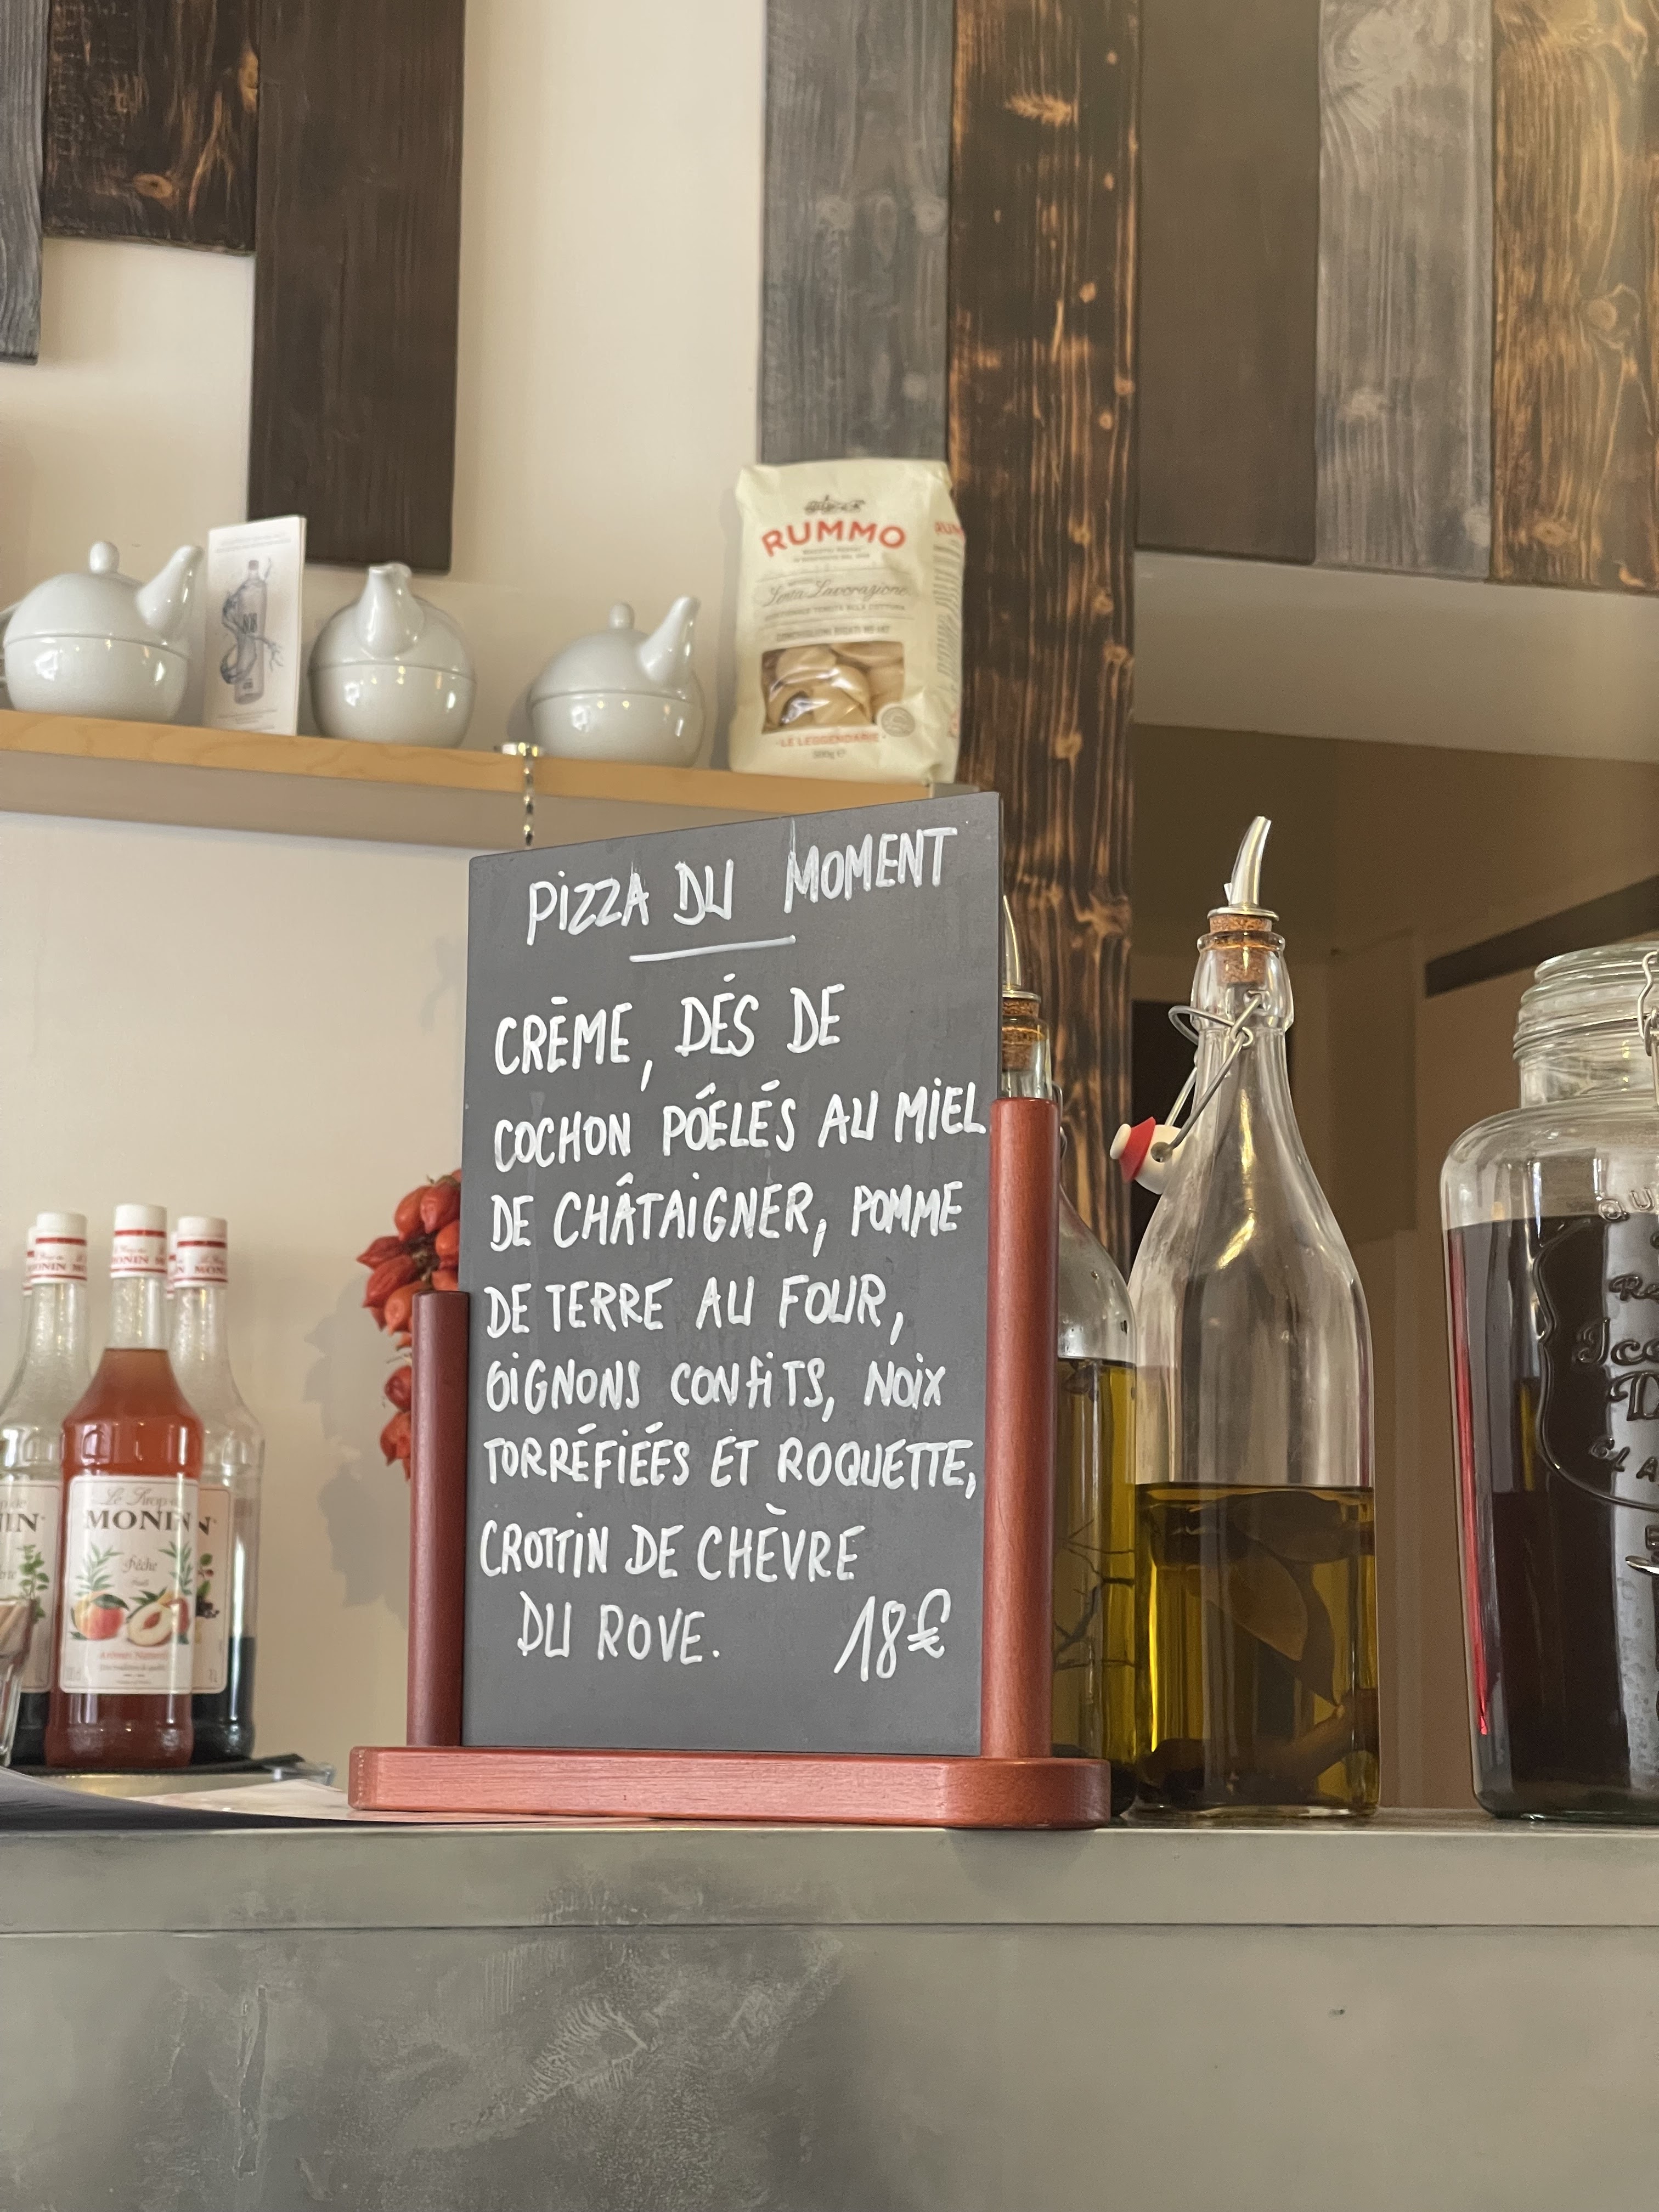 RUMMO
Lenta Lavorazione
LE LEGGENDARIE
500g e
PIZZA DU MOMENT
CRÈME, DÉS DE
COCHON PÓÉLÉS AU MIEL
DE CHÂTAIGNER, POMME
DE TERRE AU FOUR,
OIGNONS CONFITS, NOIX
TORRÉFIÉÉS ET ROQUETTE,
CROTTIN DE CHÈVRE
DU ROVE. 18€
MONIN
Le Sirop de
MONIN
Pêche